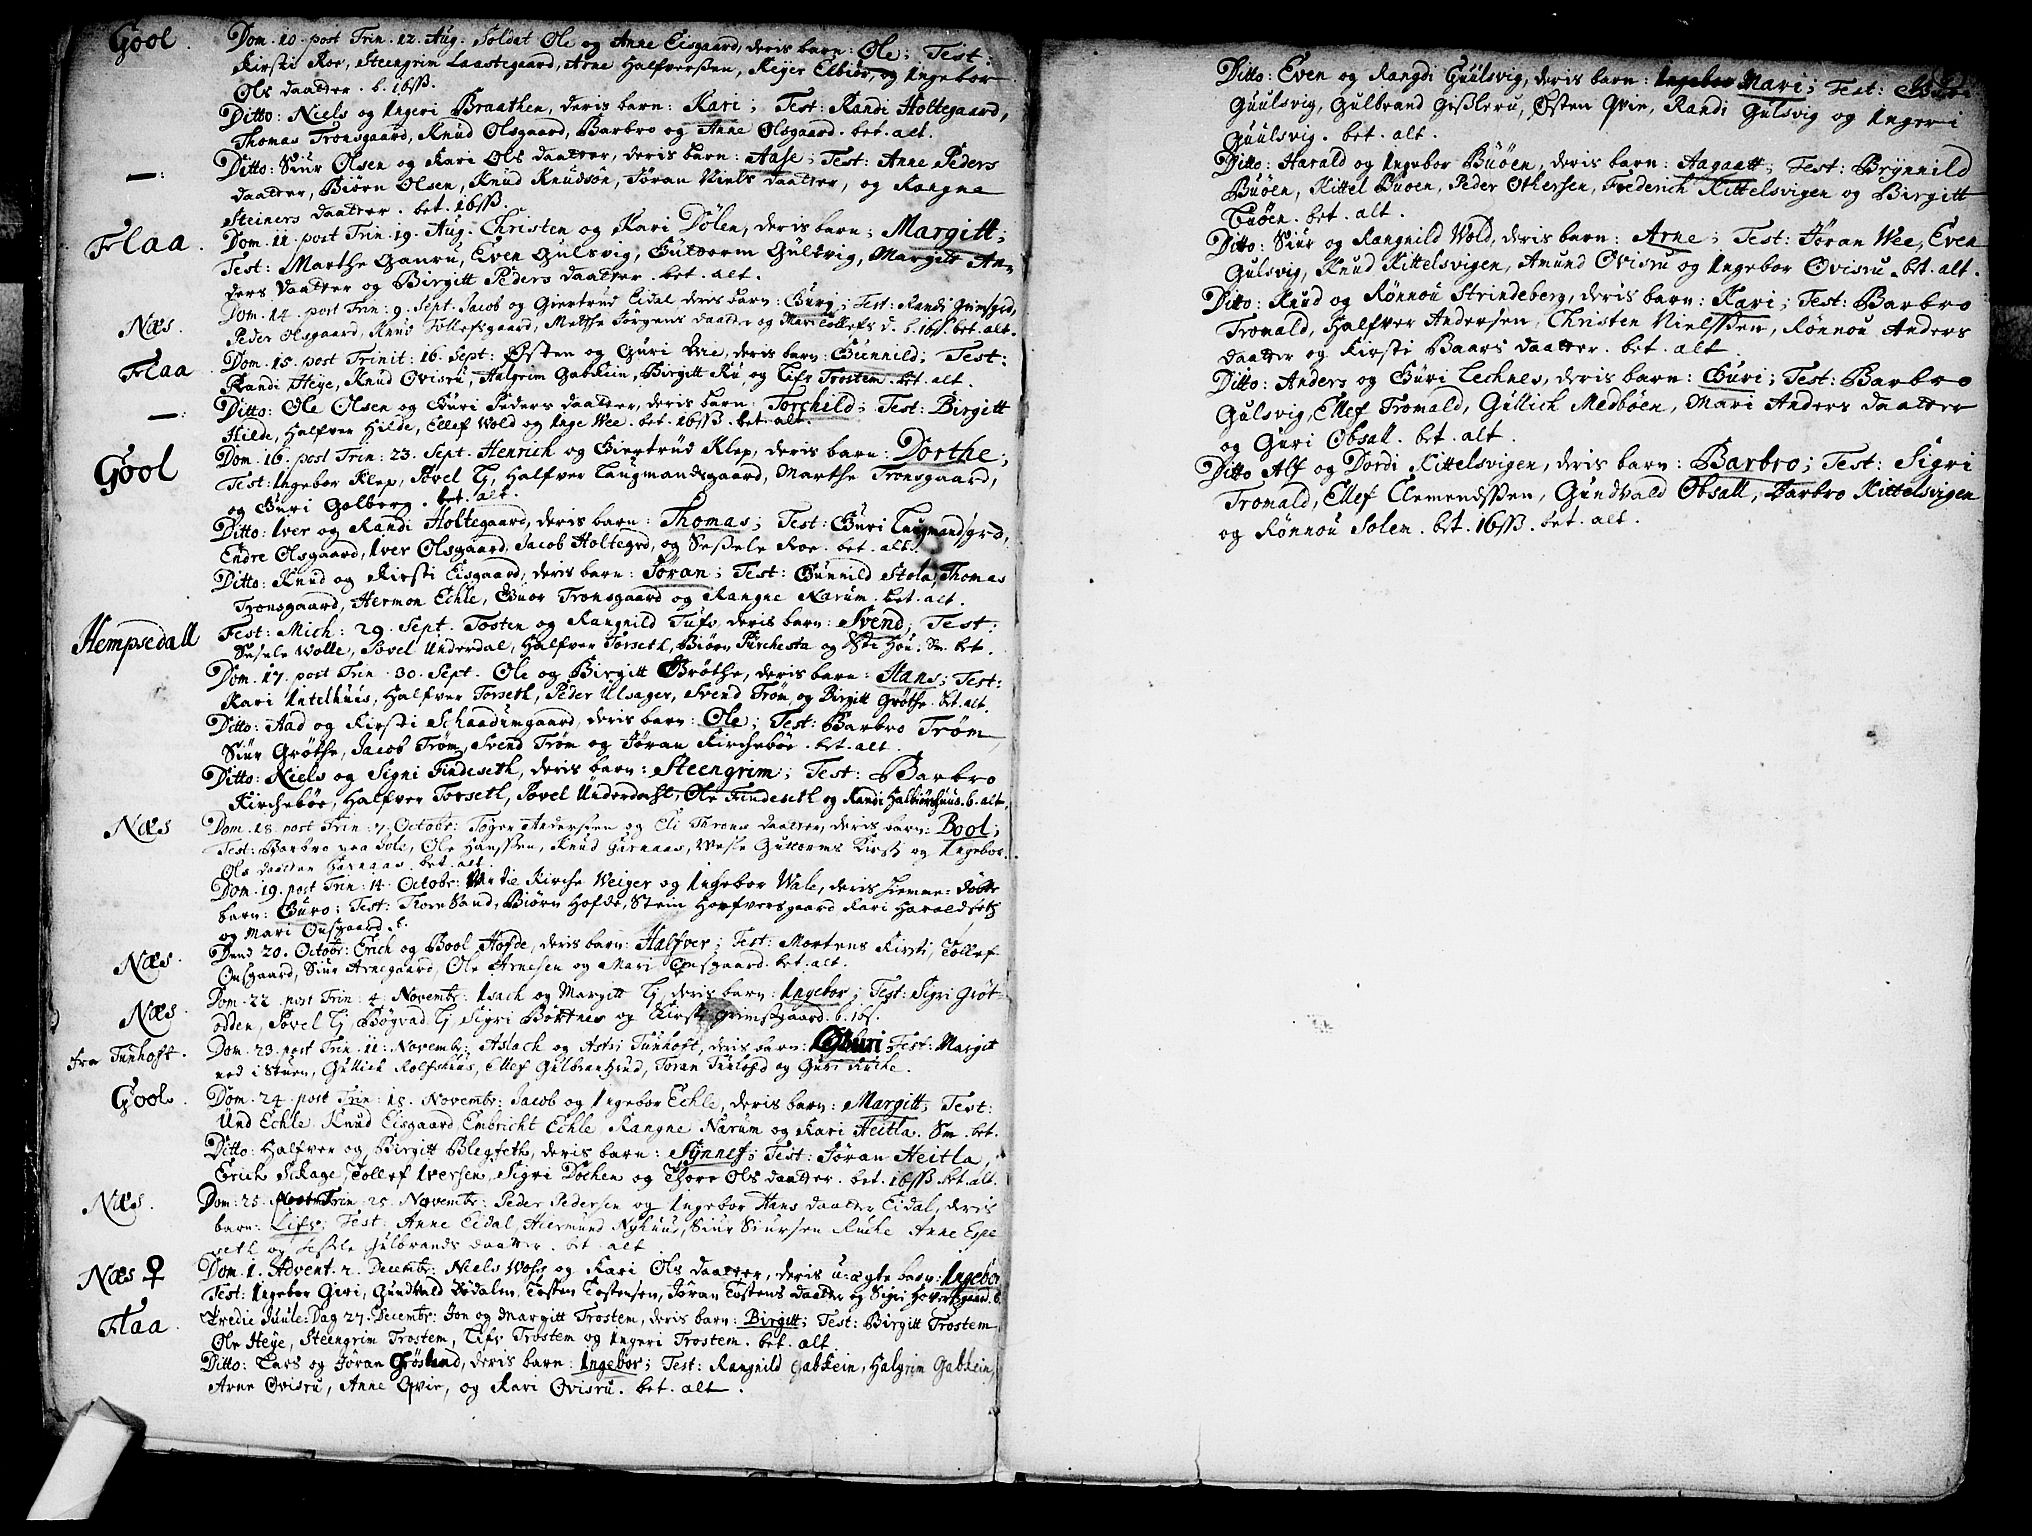 Gool. Dom. 10. post Trin. 12. Aug. Soldat Ole og Anne Eisgaard, deris barn: Ole; Test:
Kirsti Roe, Steengrim Laastegaard, Arne Halfverßen, Reijer Elbiør, og Ingebor
Ols daatter. b. 16ß.
Ditto: Niels og Ingeri Braathen, deris barn: Kari; Test: Randi Holtegaard,
Thomas Tronsgaard, Knud Olsgaard, Barbro og Anne Olsgaard. bet. alt.
—: Ditto: Siur Olsen og Kari Ols daatter, deris barn: Aase; Test: Anne Peders
daatter, Biørn Olsen, Knud Knudsøn, Jøran Niels daatter, og Rangne
Steiners daatter. bet. 16ß.
Flaa. Dom. 11. post Trin. 19. Aug. Christen og Kari Dølen, deris barn: Margitt;
Test: Marthe Gauru, Even Gulsvig, Guttorm Gulsvig, Margitt An-
ders daatter og Birgitt Peders daatter. bet. alt.
Næs. Dom. 14. post Trin. 9. Sept. Jacob og Giertrud Eidal deris barn: Burg; Test: Randi
Peder Olsgaard, Knud Tollefsgaard, Mette Jørgens daatter og Mari Tollefs d. b. 16ß. bet. alt.
Flaa Dom. 15. post Trinit: 16. Sept: Østen og Guri Qvie, deris barn: Gunnild; Test:
Randi Heye, Knud Ovisru, Halgrim Gabkein, Birgitt Ru, og Lifv Trostem. bet. alt.
—: Ditto: Ole Olsen og Guri Peders daatter, deris barn: Torchild; Test: Birgitt
Hilde, Halfver Hilde, Ellef Wold og Inge Wee. bet. 16ß. bet. alt.
Gool Dom. 16. post Trin: 23. Sept. Henrich og Giertrud Klep, deris barn: Dorthe;
Test: Ingebor Klep, Povel Lj, Halfver Laugmandsgaard, Marthe Tronsgaard,
og Guri Golberg. bet. alt.
Ditto: Iver og Randi Holtegaard, deris barn: Thomas; Test: Guri Laugmandsgrd,
Endre Olsgaard, Iver Olsgaard, Jacob Holtegrd, og Seßele Roe. bet. alt.
Ditto: Knud og Kirsti Eisgaard, deris barn: Jøran; Test: Gunnild Stola, Thomas
Tronsgaard, Hermon Echle, Guor Tronsgaard og Rangne Narum. bet. alt.
Hempsedall Fest: Mich: 29. Sept. Tosten og Rangnild Tuf, deris barn: Svend; Test:
Sesele Wolle, Povel Underdal, Halfver Torseth, Biørn Kirchesta og
Dom. 17. post Trin. 30. Sept. Ole og Birgitt Grøthe, deris barn: Hans; Test:
Kari Intelhuus, Halfver Torseth, Peder Ulsager, Svend Trøm, og Birgitt Grøthe. bet. alt.
Ditto: Aad og Kirsti Schaadumgaard, deris barn: Ole; Test: Barbro Trøm,
Siur Grøthe, Jacob Trøm, Svend Trøm og Jøran Kirchebøe. bet. alt.
Ditto: Niels og Signi Findeseth, deris barn: Steengrim; Test: Barbro
Kirchebøe, Halfver Torseth, Povel Underdahl, Ole Findeseth og Randi Halbiørshuus. b. alt.
Næs Dom. 18. post Trin. 7. Octobr: Tøger Anderßen og Eli Throns daatter, deris barn: Bool;
Test: Barbro paa Sole, Ole Hanßen, Knud Garnaas, Wesle Guttorms Kirsti og Ingebor
Ols daatter Garnaas. bet. alt.
Dom. 19. post Trin. 14. Octobr: Kirche Weiger og Ingebor Wale, deris hiemme-døbte
barn: Guro; Test: Sand, Biørn Hofde, Stein Horfversgaard Kari Haraldseth
og Mari Onsgaard. b.
Næs. Dend 20. Octobr: Erich og Bool Hofde, deris barn: Halfver; Test: Mortens Kirsti, Tollef
Onsgaard, Siur Arnegaard, Ole Arnesen og Mari Onsgaard. bet. alt.
Næs. Dom. 22. post Trin: 4. Novembr: Isach og Margitt Lj, deris barn: Ingebor; Test: Sigri Grøt-
odden, Povel Lj, Bøgvad Lj, Sigri Bottnes og Kirsti Grimsgaard. b. 16ß.
fra Tunhoft. Dom. 23. post Trin. 11. Novembr: Aslach og Astri Tunhoft, deris barn: Guri; Test: Margitt
ned i Stuen, Gullich Rolfshuus, Ellef Gulbranhrud, Jøran Tunhofd og Guri Ruche.
Gool. Dom. 24. post Trin: 18. Novembr: Jacob og Ingebor Echle, deris barn: Margitt; Test:
Und Echle Knud Eisgaard Embricht Echle Rangne Narum og Kari Heitla. Sm. bet.
Ditto: Halfver og Birgitt Blegseth, deris barn: Synnef; Test: Jøran Heitla,
Erich Skage, Tollef Iversen, Sigri Dochen og Thore Ols daatter. bet. 16ß. bet. alt.
Næs. Dom: 25. Trin. 25. Novembr: Peder Pedersen og Ingebor Hans daatter Eidal, deris
barn: Lifv; Test: Anne Eidal, Hiermund Nyhuus, Siur Siursen Ruche Anne Espe
seth og Seßele Gulbrands daatter. bet. alt
Næs ♀ Dom. 1. Advent. 2. Decembr: Niels og Kari Ols daatter, deris u-ægte barn: Ingebor
Test: Ingebor Givri, Gundvald Bødalen, Tosten Tostensen, Jøran Tostens daatter og Sigri Hovertsgaard. b.
Flaa. Tredie Juule-Dag 27. Decembr: Jon og Margitt Trostem, deris barn: Birgitt; Test: Birgitt Trostem,
Ole Heye, Steengrim Trostem, Lifv Trostem og Ingeri Trostem. bet. alt.
Ditto: Lars og Jøran Grøslund, deris barn: Ingebor; Test: Rangnild Gabkein, Halgrim Gabkein,
Arne Ovisru, Anne Qvie, og Kari Ovisru. bet. alt.
Ditto: Even og Rangdi Guulsvig, deris barn: Ingebor Mari; Test: Guri
Guulsvig, Gulbrand Gißleru, Østen Qvie, Randi Gulsvig og Ingeri
Guulsvig. bet. alt.
Ditto: Harald og Ingebor Buøen, deris barn: Aagaatt; Test: Brynnild
Buøen, Kittel Buøen, Peder Othersen, Frederich Kittelsvigen og Birgitt
Buøen. bet. alt.
Ditto: Siur og Rangnild Wold, deris barn: Arne; Test: Jøran Wee, Even
Gulsvig, Knud Kittelsvigen, Amund Ovisru og Ingebor Ovisru. bet. alt.
Ditto: Knud og Rønnou Strindeberg, deris barn: Kari; Test: Barbro
Tromald, Halfver Andersen, Christen Nielßen, Rønnou Anders
daatter og Kirsti Baars daatter. bet. alt
Ditto: Anders og Guri Lechnes, deris barn: Guri; Test: Barbro
Gulsvig, Ellef Tromald, Gullich Medbøen, Mari Anders daatter
og Guri Obsall. bet. alt.
Ditto Alf og Dordi Kittelsvigen, deris barn: Barbro; Test: Sigri
Tromald, Ellef Clemendßen, Gundvald Obsall, Barbro Kittelsvigen
og Rønnou Solem. bet. 16ß. bet. alt.